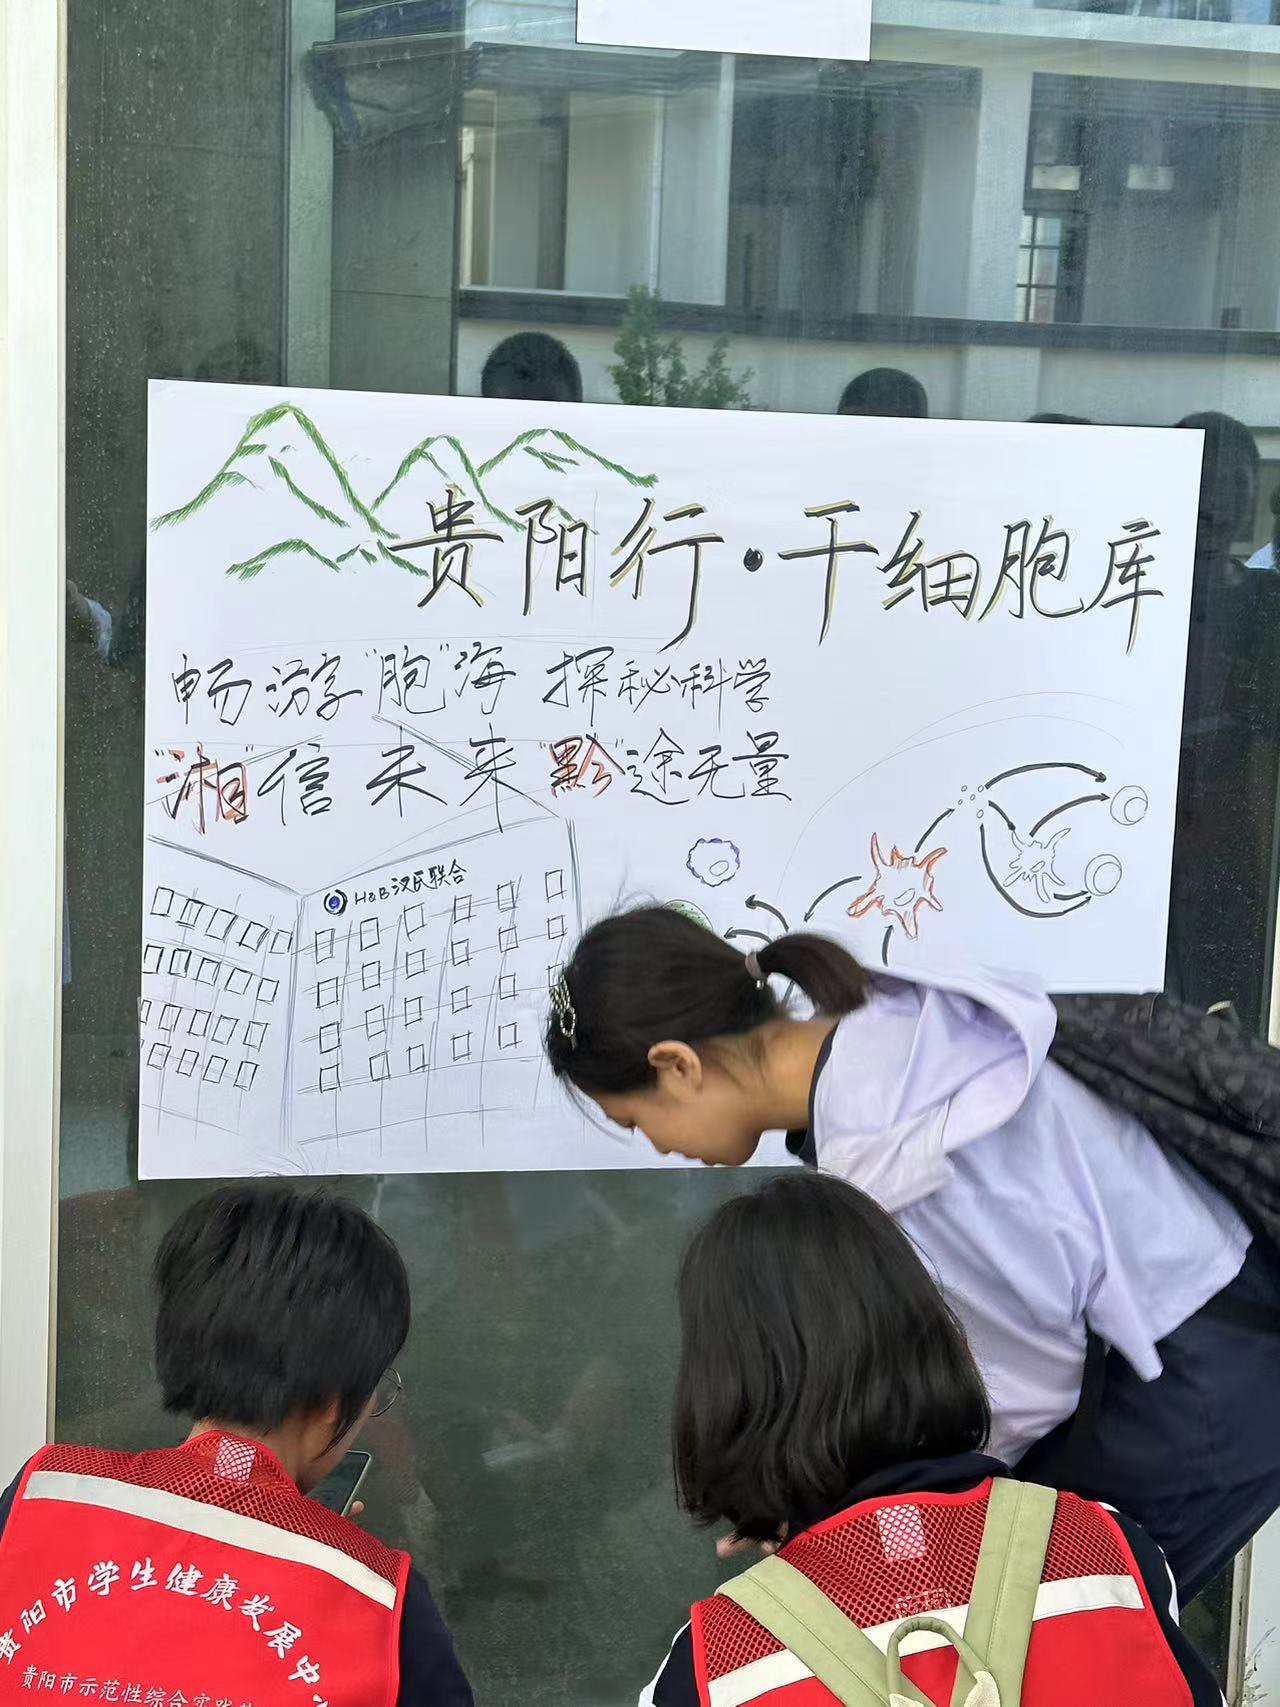 贵阳行·干细胞库
畅游"胞"海 探秘科学
"湘"信未来"黔"途无量
H&B汉氏联合
贵阳市学生健康发展中
贵阳市示范性综合实践